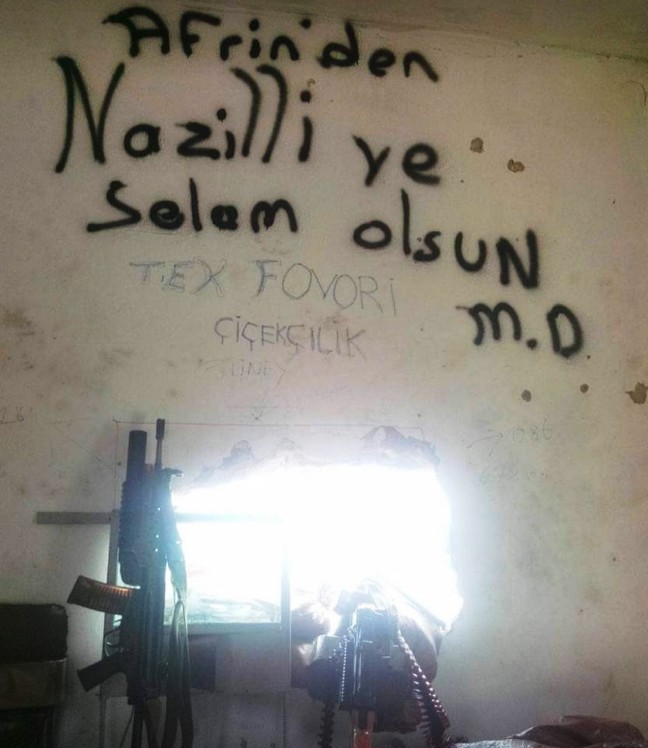 Afrin'den
Nazilli ye
Selam olsUN
M.D
TEX FOVORİ
ÇİÇEKÇILIK